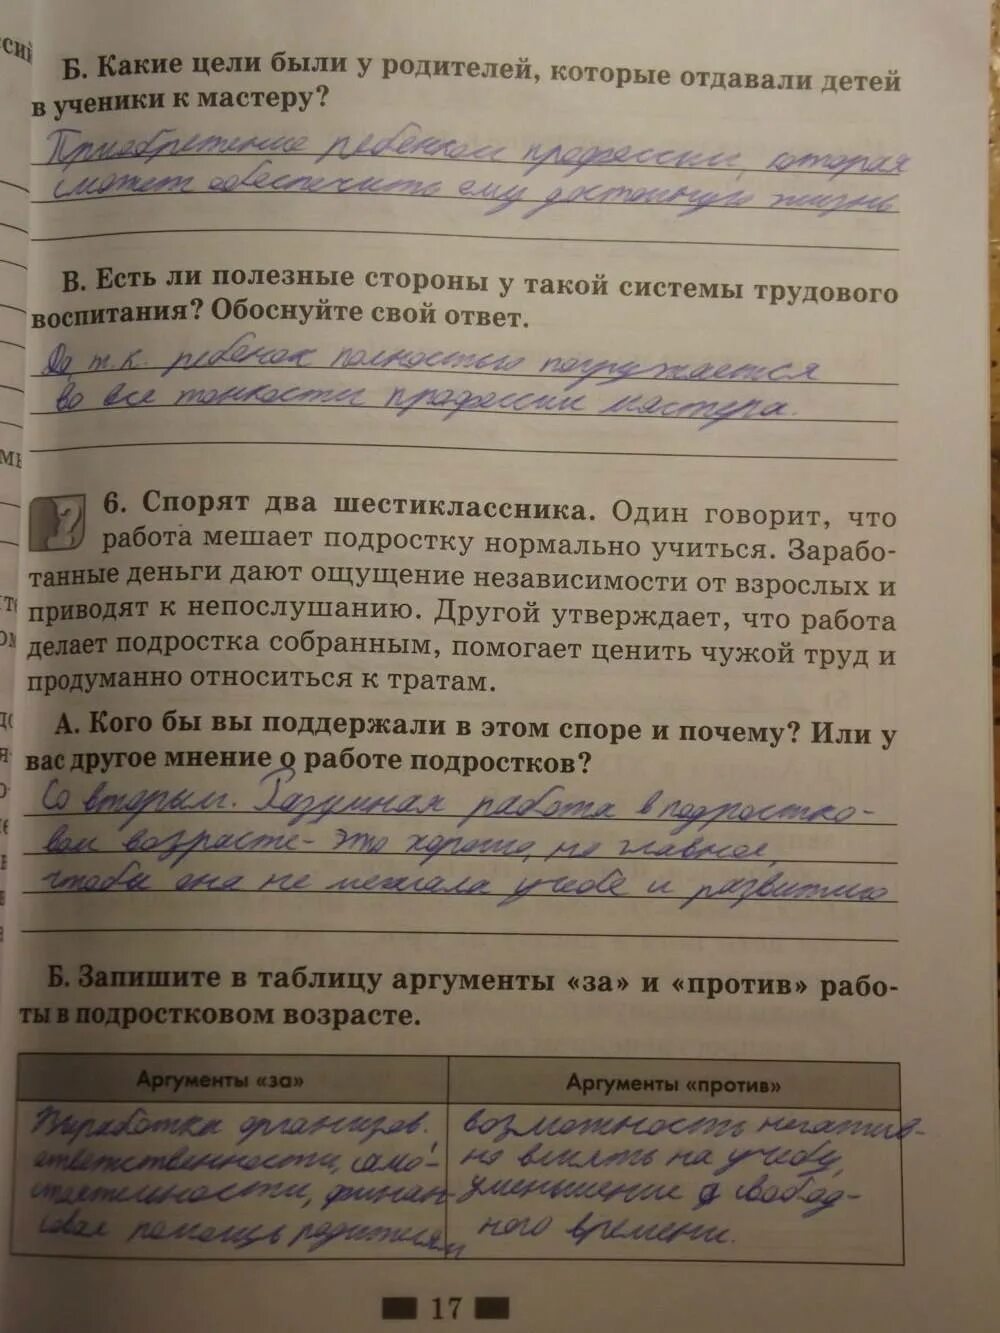 Б. Какие цели были у родителей, которые отдавали детей
в ученики к мастеру?
Приобретение ребёнком профессии, которая
сможет обеспечить ему достойную жизнь
В. Есть ли полезные стороны у такой системы трудового
воспитания? Обоснуйте свой ответ.
Да т.к. ребёнок полностью погружается
во все тонкости профессии мастера.
6. Спорят два шестиклассника. Один говорит, что
работа мешает подростку нормально учиться. Зарабо-
танные деньги дают ощущение независимости от взрослых и
приводят к непослушанию. Другой утверждает, что работа
делает подростка собранным, помогает ценить чужой труд и
продуманно относиться к тратам.
А. Кого бы вы поддержали в этом споре и почему? Или у
вас другое мнение о работе подростков?
Со вторым. Разумная работа в подростко-
вом возрасте - это хорошо, но главное,
чтобы она не мешала учебе и развитию
Б. Запишите в таблицу аргументы «за» и «против» рабо-
ты в подростковом возрасте.
Аргументы «за»
Аргументы «против»
Выработка организов.
ответственности, само-
стоятельности, финан-
совая помощь родителям
возможность негатив-
но влиять на учебу,
уменьшение свобод-
ного времени.
17